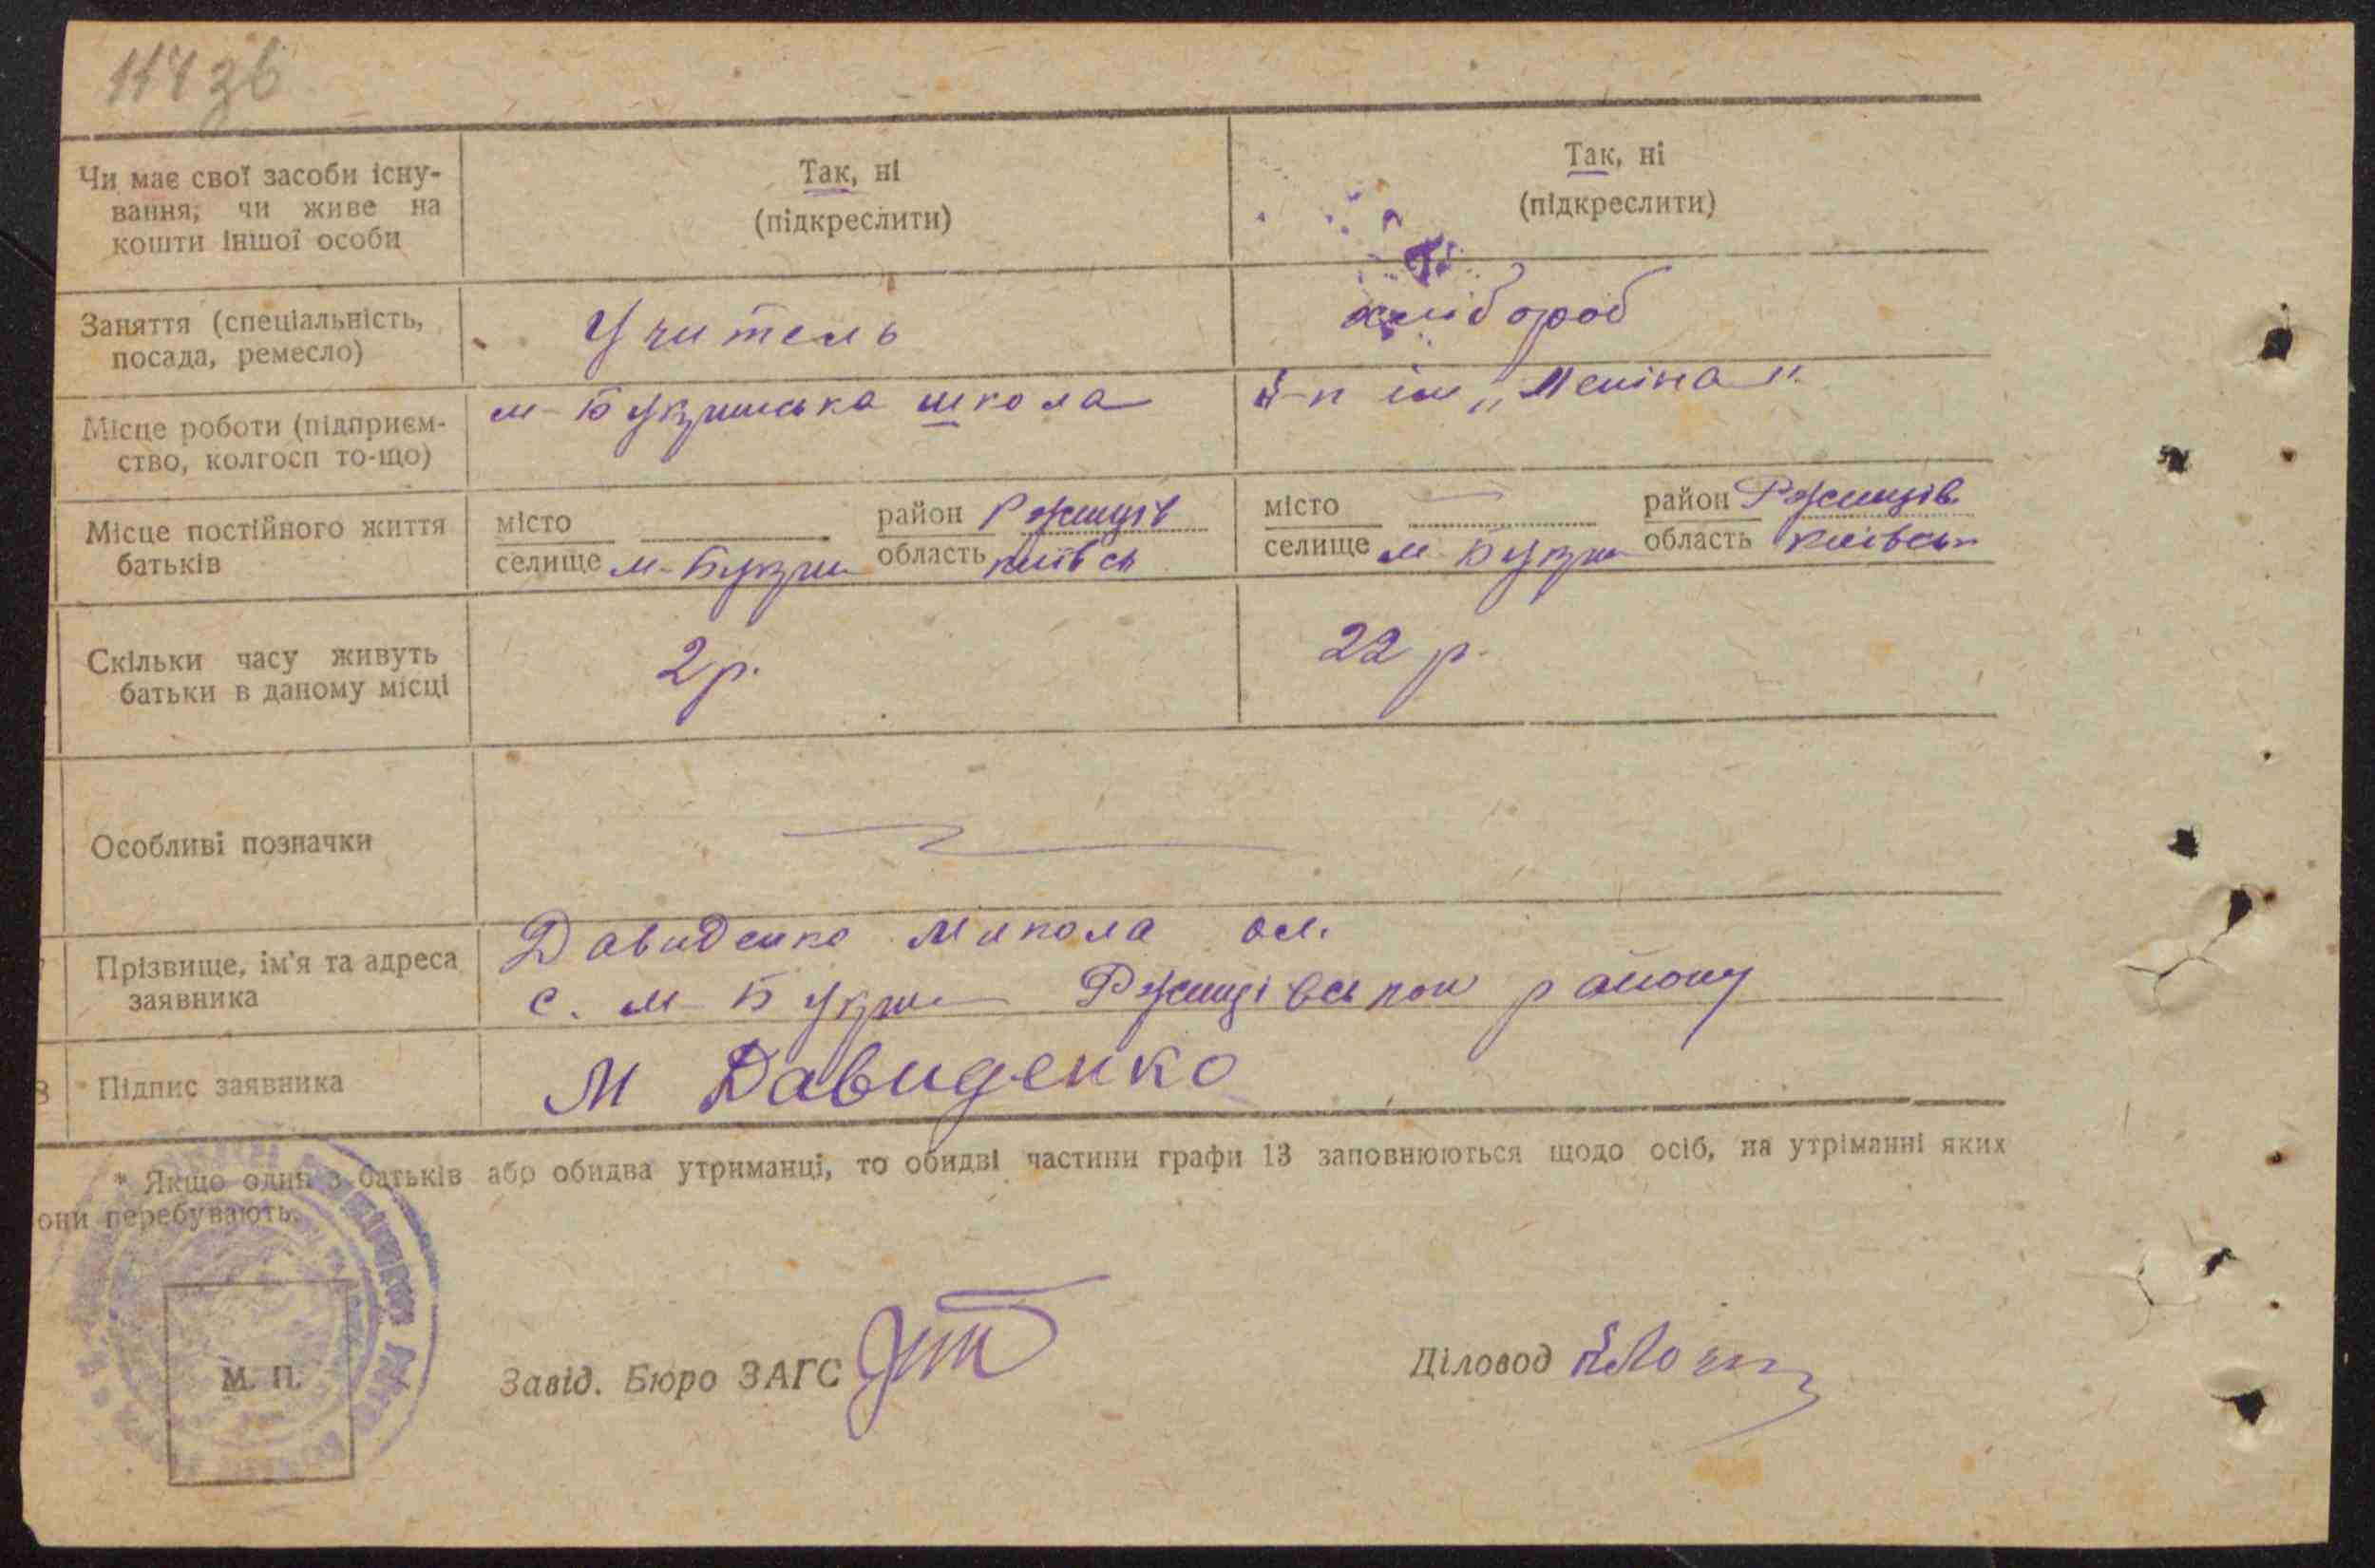 114 зв
Чи має свої засоби існу-
вання, чи живе на
кошти іншої особи
Так, ні
(підкреслити)
Так, ні
(підкреслити)
Заняття (спеціальність,
посада, ремесло)
Учитель
хлібороб
Місце роботи (підприєм-
ство, колгосп то-що)
м-Букринська школа
к-п ім „Леніна"
Місце постійного життя
батьків
місто
селище м-Букрин
район Ржищів
область київсь
місто
селище м-Букрин
район Ржищів
область київськ
Скільки часу живуть
батьки в даному місці
2 р.
22 р.
Особливі позначки
Прізвище, ім'я та адреса
заявника
Давиденко Микола ол.
с. м-Букрин Ржищівськои району
8 Підпис заявника
М Давиденко
* Якщо один з батьків або обидва утриманці, то обидві частини графи 13 заповнюються щодо осіб, на утріманні яких
они перебувають.
М. П.
Завід. Бюро ЗАГС
Діловод